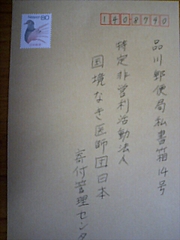 NIPPON 80
1408790
品川郵便局私書箱14号
特定非営利活動法人
国境なき医師団日本
寄付管理センタ